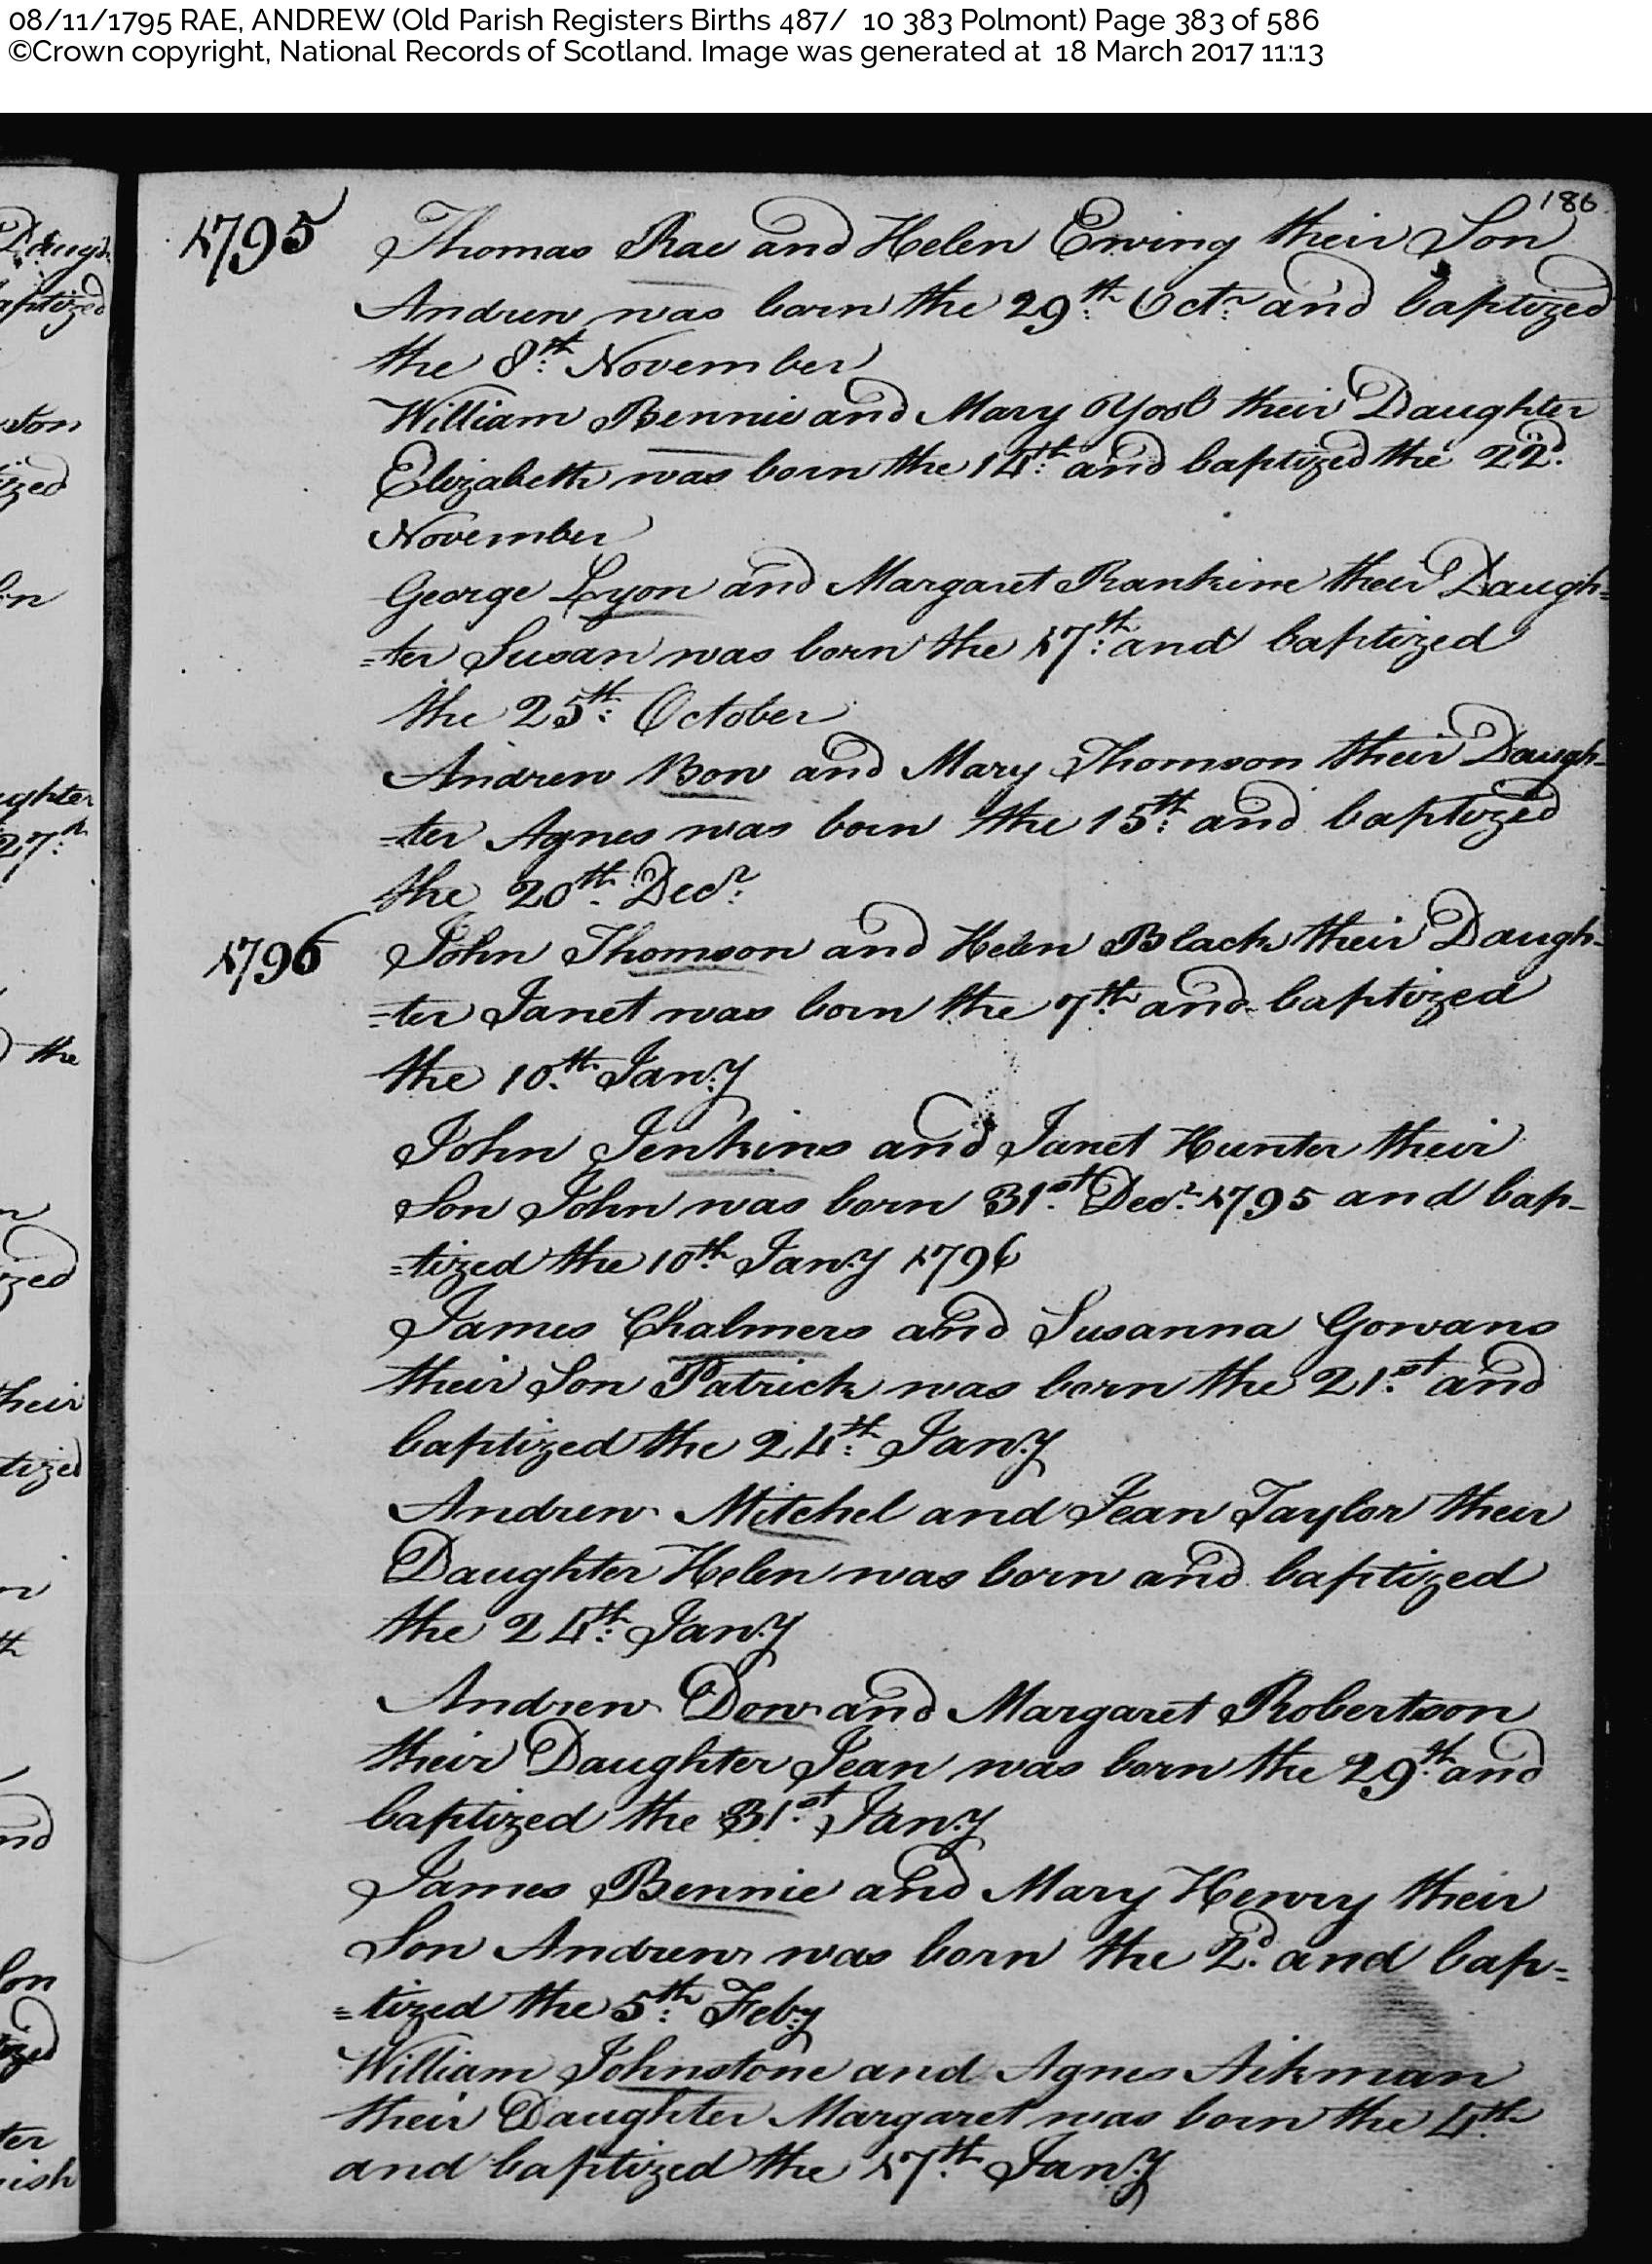 08/11/1795 RAE, ANDREW (Old Parish Registers Births 487/ 10 383 Polmont) Page 383 of 586
©Crown copyright, National Records of Scotland. Image was generated at 18 March 2017 11:13
186
1795 Thomas Rae and Helen Ewing their Son
Andrew was born the 29th Octr and baptized
the 8th November
William Bennie and Mary Yool their Daughter
Elizabeth was born the 14th and baptized the 22d
November
George Lyon and Margaret Rankine their Daugh=
=ter Susan was born the 17th and baptized
the 25th October
Andrew Bow and Mary Thomson their Daugh-
=ter Agnes was born the 15th and baptized
the 20th Decr
1796 John Thomson and Helen Black their Daugh-
=ter Janet was born the 7th and baptized
the 10th Jany
John Jenkins and Janet Hunter their
Son John was born 31st Decr 1795 and bap-
=tized the 10th Jany 1796
James Chalmers and Susanna Gowans
their Son Patrick was born the 21st and
baptized the 24th Jany
Andrew Mitchel and Jean Taylor their
Daughter Helen was born and baptized
the 24th Jany
Andrew Dow and Margaret Robertson
their Daughter Jean was born the 29th and
baptized the 31st Jany
James Bennie and Mary Henry their
Son Andrew was born the 2d and bap=
=tized the 5th Feby
William Johnstone and Agnes Aikman
their Daughter Margaret was born the 4th
and baptized the 17th Jany